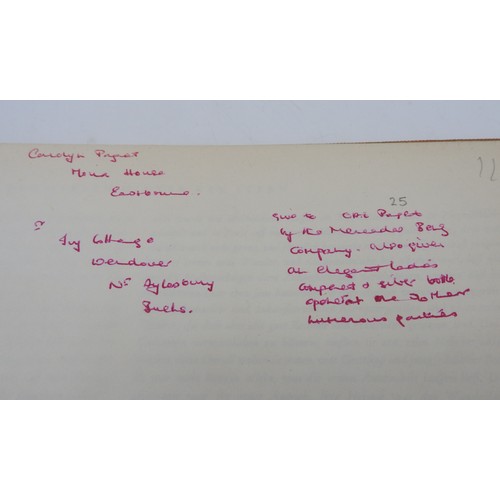 Carolyn Paget
Mena House
Eastbourne.
or
Ivy Cottage
Wendover
Nr Aylesbury
Bucks.
25
Give to Cpt Paget
by the Mercedes Benz
Company. Also given
an elegant ladies
compact & silver bottle
at one of their
numerous parties